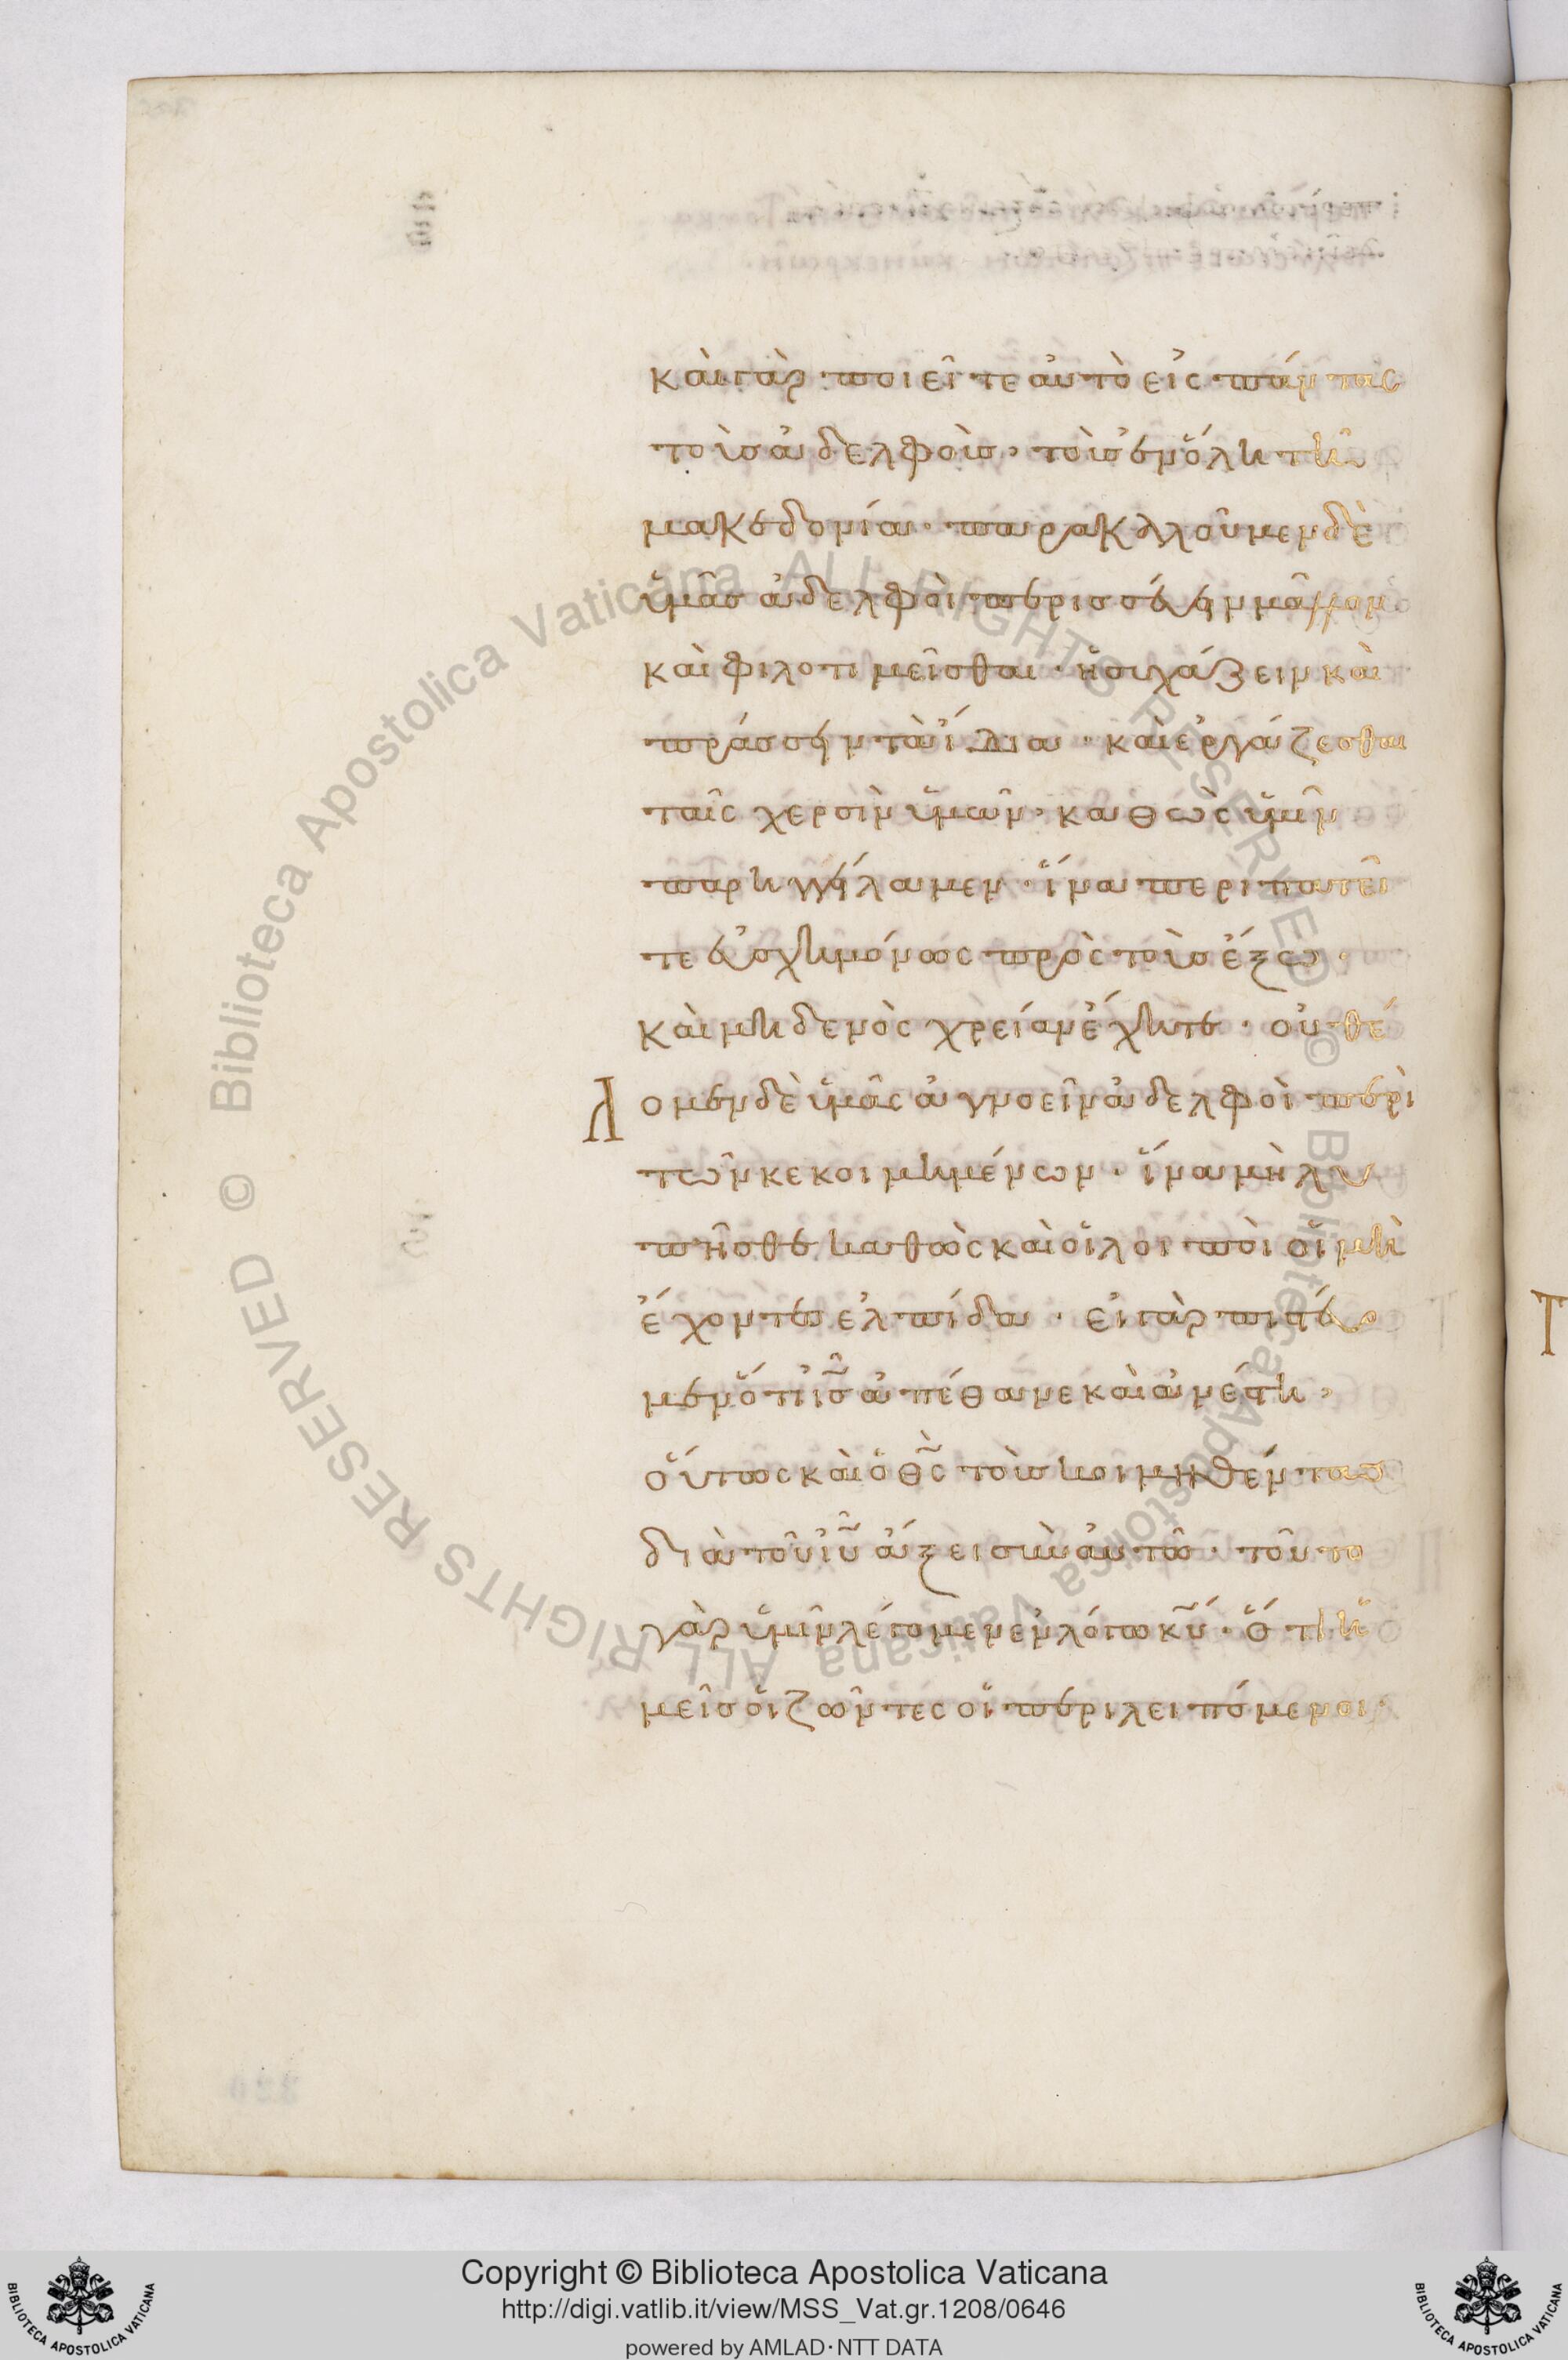 καὶ γὰρ ποιεῖτε αὐτὸ εἰς πάντας
τοὺς ἀδελφοὺς· τοὺς ἐν ὅλη τῆ
μακεδονία· παρακαλοῦμεν δὲ
ὑμᾶς ἀδελφοὶ περισσεύειν μᾶλλον
καὶ φιλοτιμεῖσθαι· ἡσυχάζειν καὶ
πράσσειν τὰ ἴδια· καὶ ἐργάζεσθαι
ταῖς χερσὶν ὑμῶν· καθὼς ὑμῖν
παρηγγείλαμεν· ἵνα περιπατεῖ
τε εὐσχημόνως πρὸς τοὺς ἔξω·
καὶ μηδενὸς χρείαν ἔχητε· οὐ θέ
λομεν δὲ ὑμᾶς ἀγνοεῖν ἀδελφοὶ περὶ
τῶν κεκοιμημένων· ἵνα μὴ λυ
πῆσθε καθὼς καὶ οἱ λοιποὶ οἱ μὴ
ἔχοντες ἐλπίδα· εἰ γὰρ πιστεύο
μεν ὅτι ἰς ἀπέθανε καὶ ἀνέστη·
οὕτως καὶ ὁ θς τοὺς κοιμηθέντας
διὰ τοῦ ιυ ἄξει σὺν αὐτῶ· τοῦτο
γὰρ ὑμῖν λέγομεν ἐν λόγω κυ· ὅτι ἡ
μεῖς οἱ ζῶντες οἱ περιλειπόμενοι
Copyright © Biblioteca Apostolica Vaticana
http://digi.vatlib.it/view/MSS_Vat.gr.1208/0646
powered by AMLAD·NTT DATA
© Biblioteca Apostolica Vaticana ALL RIGHTS RESERVED
© Biblioteca Apostolica Vaticana ALL RIGHTS RESERVED
BIBLIOTECA APOSTOLICA VATICANA
BIBLIOTECA APOSTOLICA VATICANA